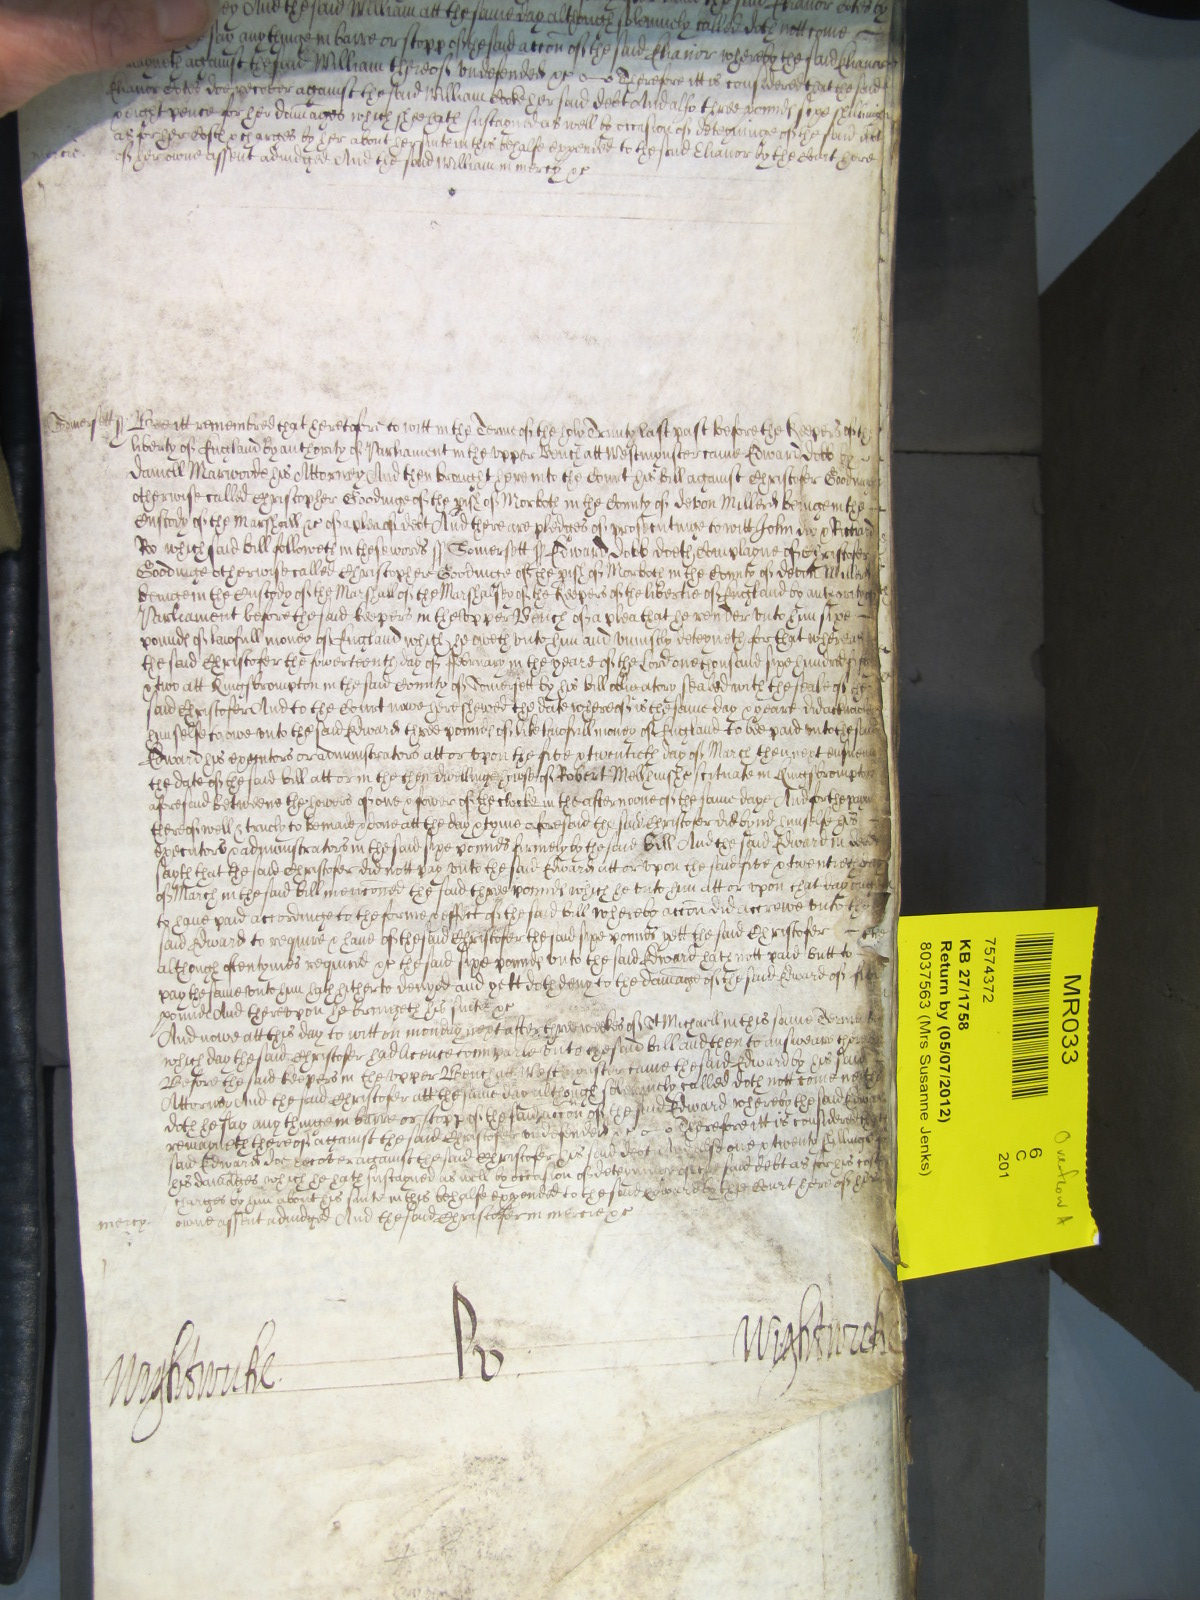 And the said William att the same day although solemnely called doth nott come
say any thinge in barre or stopp of the said accon of the said Elianor whereby the said Elianor
against the said William thereof undefended &c Therefore itt is considered that the said
Elianor doe recover against the said William Cooke her said debt And also three pounds sixe shillings
eight pence for her damages which shee hath susteyned as well by occasion of deteyninge of the said debt
as for her costs & charges by her about her suite in this behalfe expended to the said Elianor by the Court here
of her owne assent adiudged And the said William in mercy &c
mercie
Somersett ss Bee itt remembred that heretofore to witt in the Terme of the holy Trinity last past before the Keepers of the
liberty of England by authority of Parliament in the upper Bench att Westminster came Edward Dobb by
Daniell Marwoode his Attorney And then brought here into the Court his bill against Christofer Goodinge
otherwise called Christopher Goodinge of the pish of Morboth in the County of Devon Miller beinge in the
Custody of the Marshall &c of a plea of debt And there are pledges of prosecutinge to witt John Doe & Richard
Roo which said bill followeth in these words ss Somersett ss Edward Dobb doeth Complayne of Christofer
Goodinge otherwise called Christopher Goodinge of the pish of Morboth in the County of Devon Miller
beinge in the Custody of the Marshall of the Marshalsey of the Keepers of the libertie of England by authority of
Parliament before the said Keepers in the upper Bench of a plea that he render unto him sixe
pounds of lawfull money of England which he oweth unto him and uniustly deteyneth for that whereas
the said Christofer the fowerteenth day of February in the yeare of the Lord one thousand sixe hundred fiftie
& two att Kingsbrompton in the said County of Somersett by his bill obligatory sealed with the seale of the
said Christofer And to the Court nowe here shewed the date whereof is the same day & yeare did acknowledge
himselfe to owe unto the said Edward three pounds of like lawfull money of England to be paid unto the said
Edward his executors or administrators att or upon the five & twentieth day of March then next ensueinge
the date of the said bill att or in the then dwellinge house of Robert Melhuishe scituate in Kingsbrompton
aforesaid betweene the howers of one & fower of the clocke in the afternoone of the same daye And for the paymt
thereof well & truely to be made & done att the day & tyme aforesaid the said Christofer did bynd himselfe his
executors & administrators in the said sixe pounds firmely by the said Bill And the said Edward in deed
sayth that the said Christofer did nott pay unto the said Edward att or upon the said five & twentieth day
of March in the said bill mencioned the said three pounds which he unto him att or upon that day ought
to have paid accordinge to the forme & effect of the said bill whereby accon did accrewe unto the
said Edward to require & have of the said Christofer the said sixe pounds yett the said Christofer
although oftentymes required &c the said sixe pounds unto the said Edward hath nott paid butt to
pay the same unto him hath hitherto denyed and yett doth deny to the damage of the said Edward of five
pounds And thereupon he bringeth his suite &c
And nowe att this day to witt on monday next after three weekes of St Michaell in this same Terme untill
which day the said Christofer had licence to imparle unto the said bill and then to answeare thereunto
Before the said Keepers in the upper Bench att Westminster came the said Edward by his said
Attorney And the said Christofer att the same day although solemnely called doth nott come neither
doth he say any thinge in barre or stopp of the said accon of the said Edward whereby the said Edward
remayneth thereof against the said Christofer undefended &c Therefore itt is considered that
said Edward doe recover against the said Christofer his said debt And also one & twenty shillings for
his damages which he hath susteyned as well by occasion of deteyninge of the said debt as for his costs
charges by him about his suite in this behalfe expended to the said Edward by the Court here of his
owne assent adiudged And the said Christofer in mercie &c
mercy.
Wightwicke
Ro
Wightwick
MR033
7574372
KB 27/1758
Return by (05/07/2012)
8037563 (Mrs Susanne Jenks)
6
C
201
Overflow A